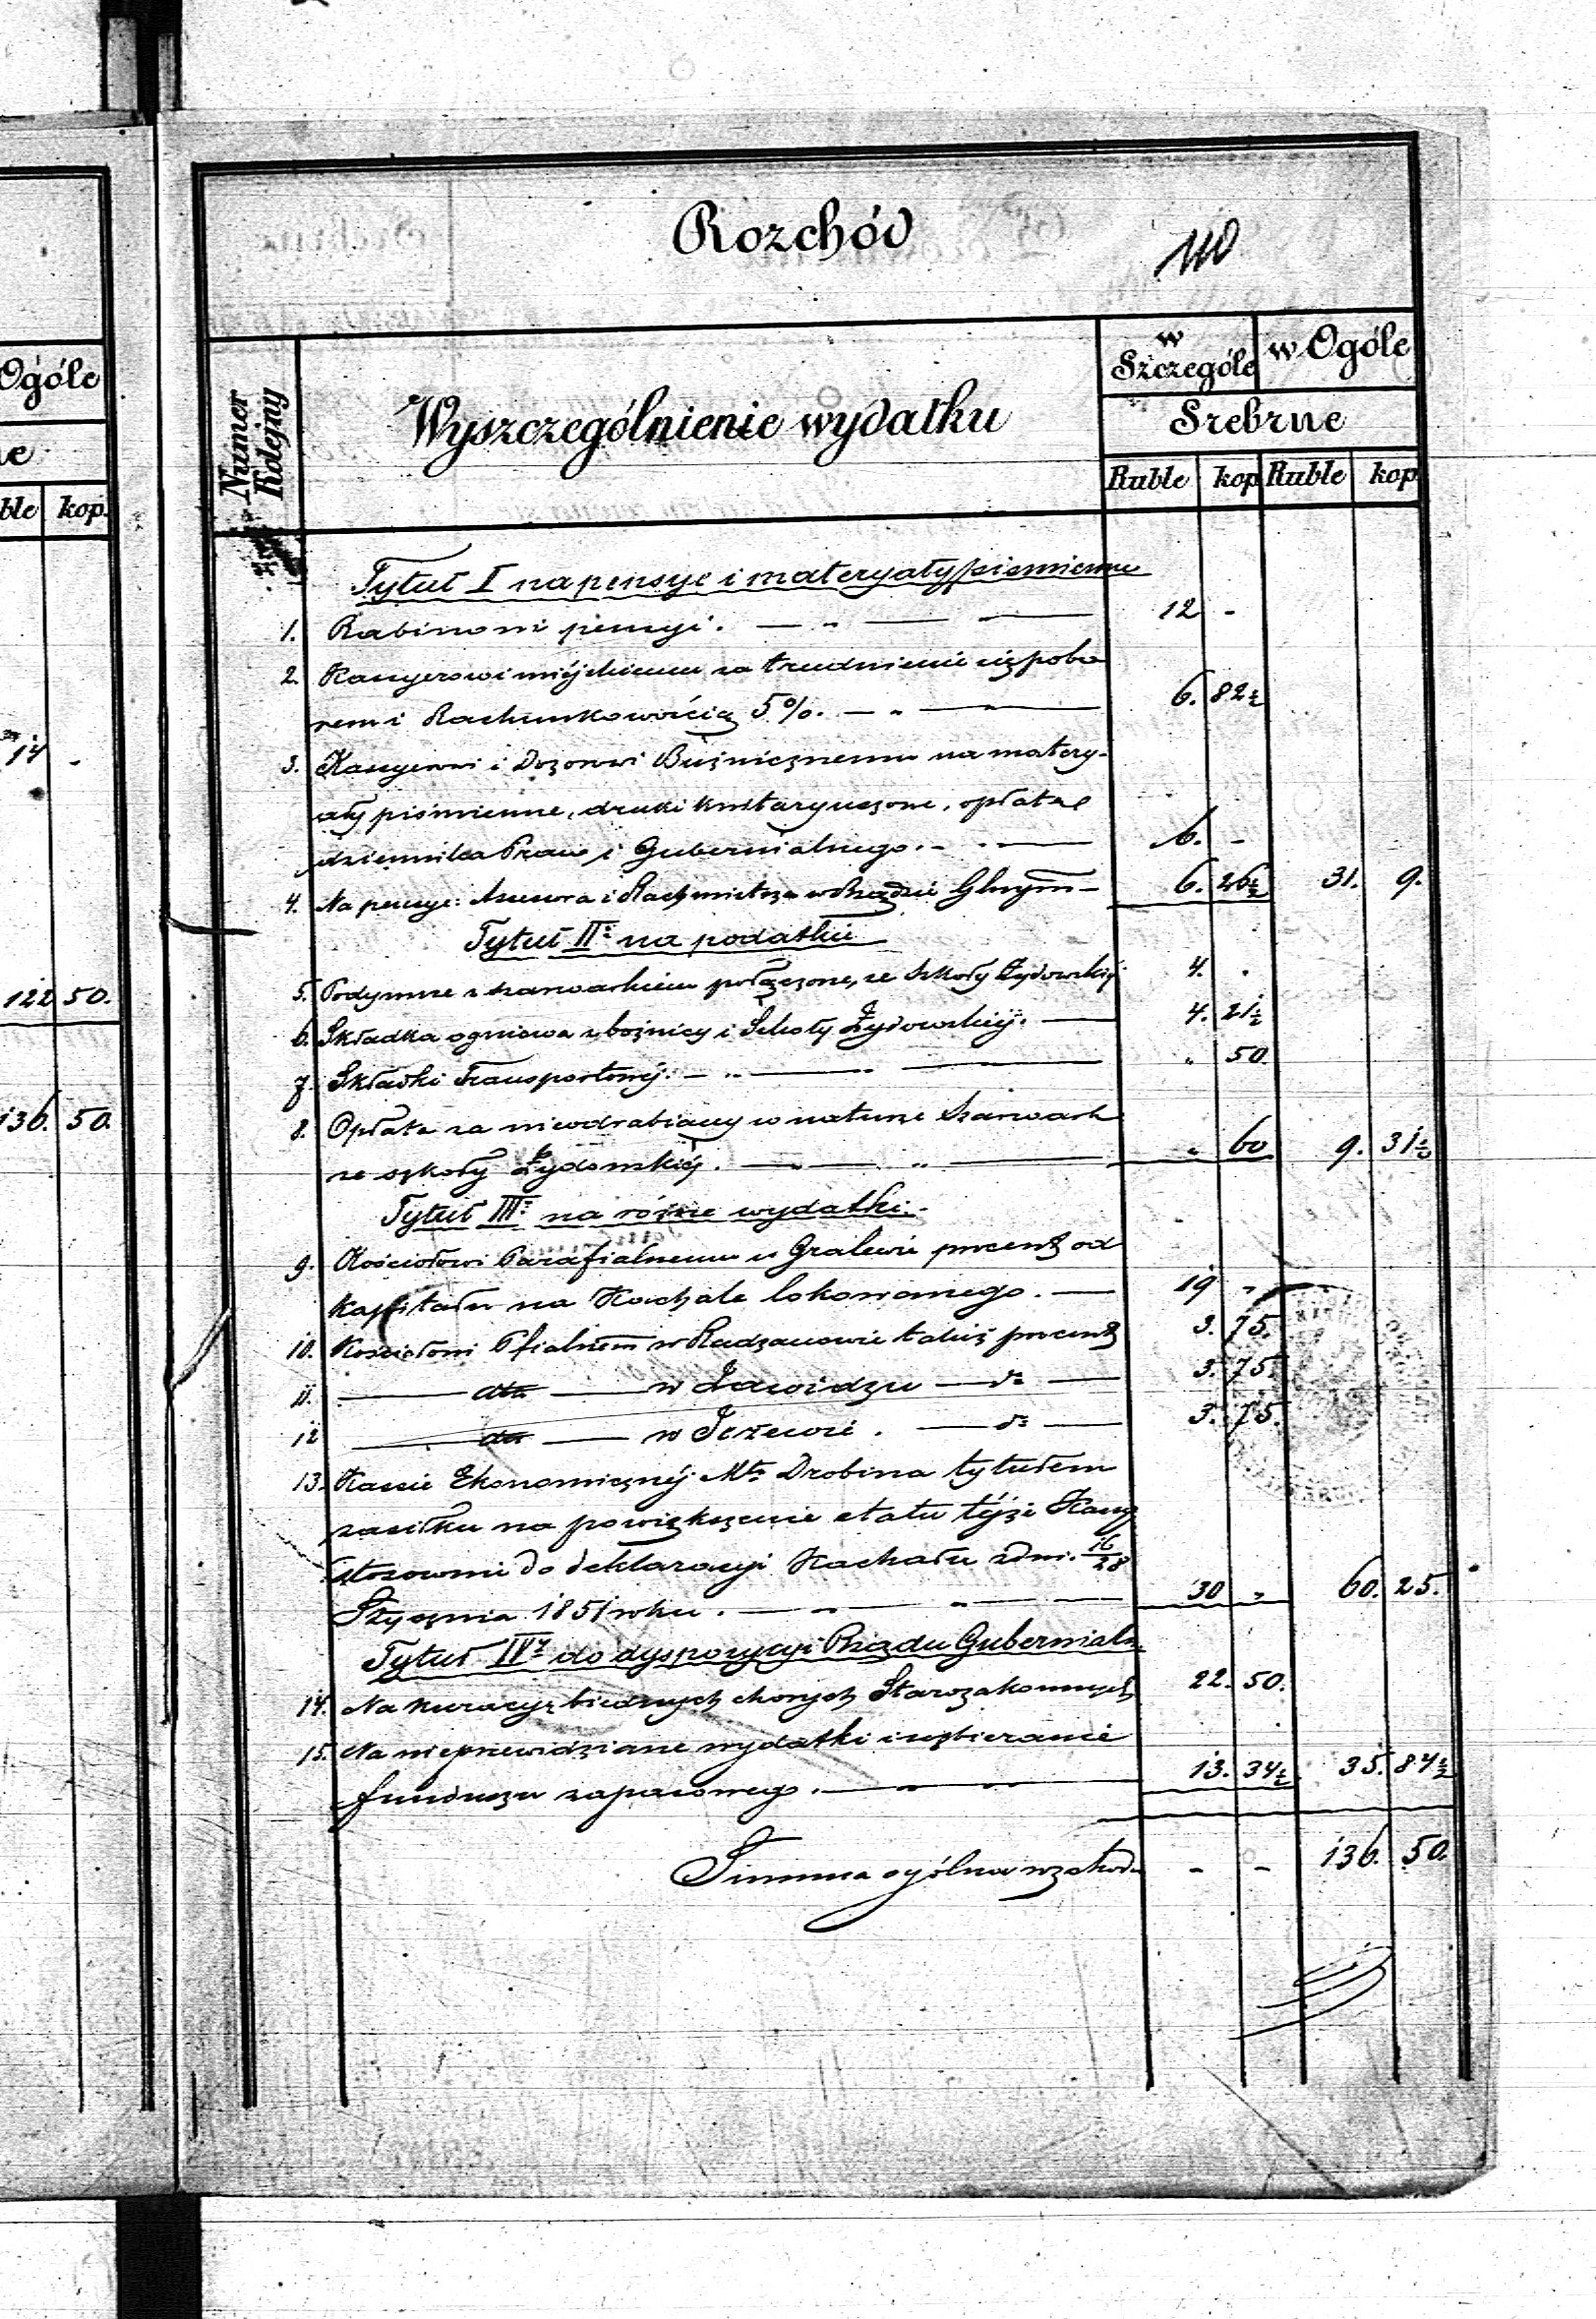 Ogóle
ne
ble kop.
14 -
122 50.
136. 50.
Rozchód
110
Numer Kolejny
Wyszczególnienie wydatku
w Szczególe
w Ogóle
Srebrne
Ruble kop Ruble kop
Tytuł I na pensye i materyały piśmienne
1. Rabinowi pensyi. 12 -
2 Kassyerowi miéjskiemu za trudnienie się pobo
rem i Rachunkowością 5%. 6. 82½
3. Kassyerowi i Dozorowi Bużnicznemu na matery-
ały piśmienne, druki kwitaryuszowe, opłatę
dziennika Praw i Gubernialnego. 6. -
4. Na pensye: Assesora i Rachmistrza w Rządzie Glnym 6. 26½ 31. 9.
Tytuł II: na podatki
5. Podymne z szarwarkiem połączone, ze szkoły Żydowskiéj 4. .
6. Składka ogniowa z bożnicy i Szkoły Żydowskiéj. 4. 21½
7. Składki Transportowéj. " 50.
8. Opłata za nieodrabiany w naturze Szarwark
ze szkoły Żydowskiéj. " 60 9. 31½
Tytuł III: na różne wydatki.
9. Kościołowi Parafialnemu w Gralewie procent od
kapitału na Kachale lokowanego. 19 "
10. Kościołowi Pfialnem w Radzanowie takiż procent 3. 75.
11. dto w Zawidzu do 3. 75.
12 dto w Jeżewie. do 3. 75.
13. Kassie Ekonomicznéj Mta Drobina tytułem
zasiłku na powiększenie etatu téjże Kassy
stosownie do deklaracyi Kachału z dni. 16/28
Stycznia 1851 roku. 30 " 60. 25.
Tytuł IVy do dyspozycyi Rządu Gubernialn.
14. Na kuracyę biednych chorych Starozakonnych 22. 50.
15. Na nieprzewidziane wydatki i uzbieranie
funduszu zapasowego. 13. 34½ 35. 84½
Summa ogólna rozchodu - - 136. 50.